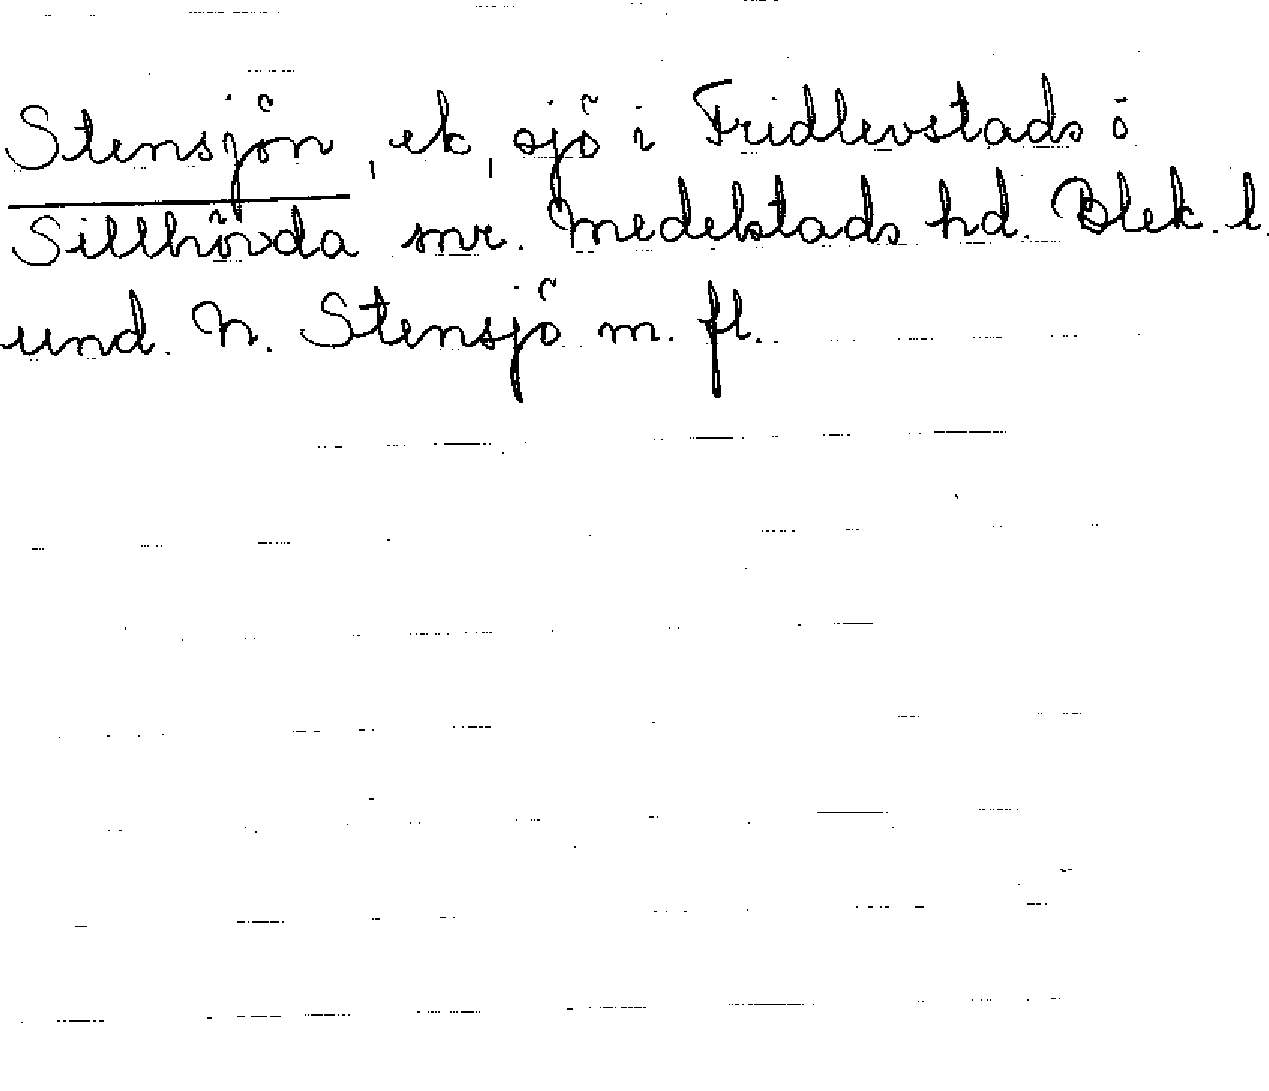 Stensjön, ek, sjö i Fridlevstads o
Sillhövda snr. Medelstads hd. Blek. l.
und. N. Stensjö m. fl.